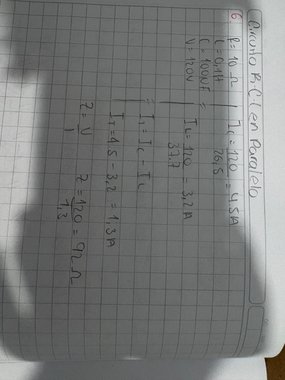 Circuito R-C-L en Paralelo
6)
R = 10 Ω
L = 0,1 H
C = 100 µF
V = 120 V
Ic = 120 / 26,5 = 4,5 A
IL = 120 / 37,7 = 3,2 A
IT = Ic - IL
IT = 4,5 - 3,2 = 1,3 A
Z = V / I
Z = 120 / 1,3 = 92 Ω